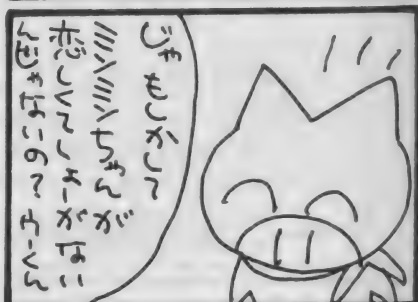 じゃもしかして
ミンミンちゃんが
恋しくてしょーがない
んじゃないの？ウーくん